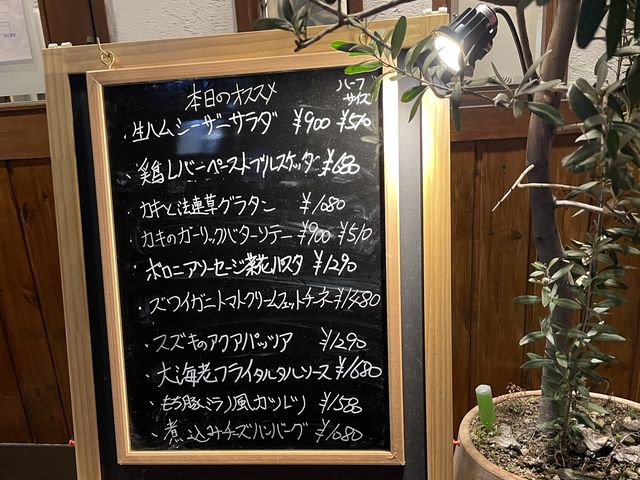 本日のオススメ
ハーフ
サイズ
・生ハムシーザーサラダ ¥900 ¥510
・鶏レバーペーストブルスケッタ ¥680
・カキと法連草グラタン ¥1080
・カキのガーリックバターソテー ¥900 ¥510
・ボロニアソーセージ菜花パスタ ¥1290
・ズワイガニトマトクリームフェットチーネ ¥1480
・スズキのアクアパッツア ¥1290
・大海老フライタルタルソース ¥1680
・もち豚ミラノ風カツレツ ¥1580
・煮込みチーズハンバーグ ¥1680